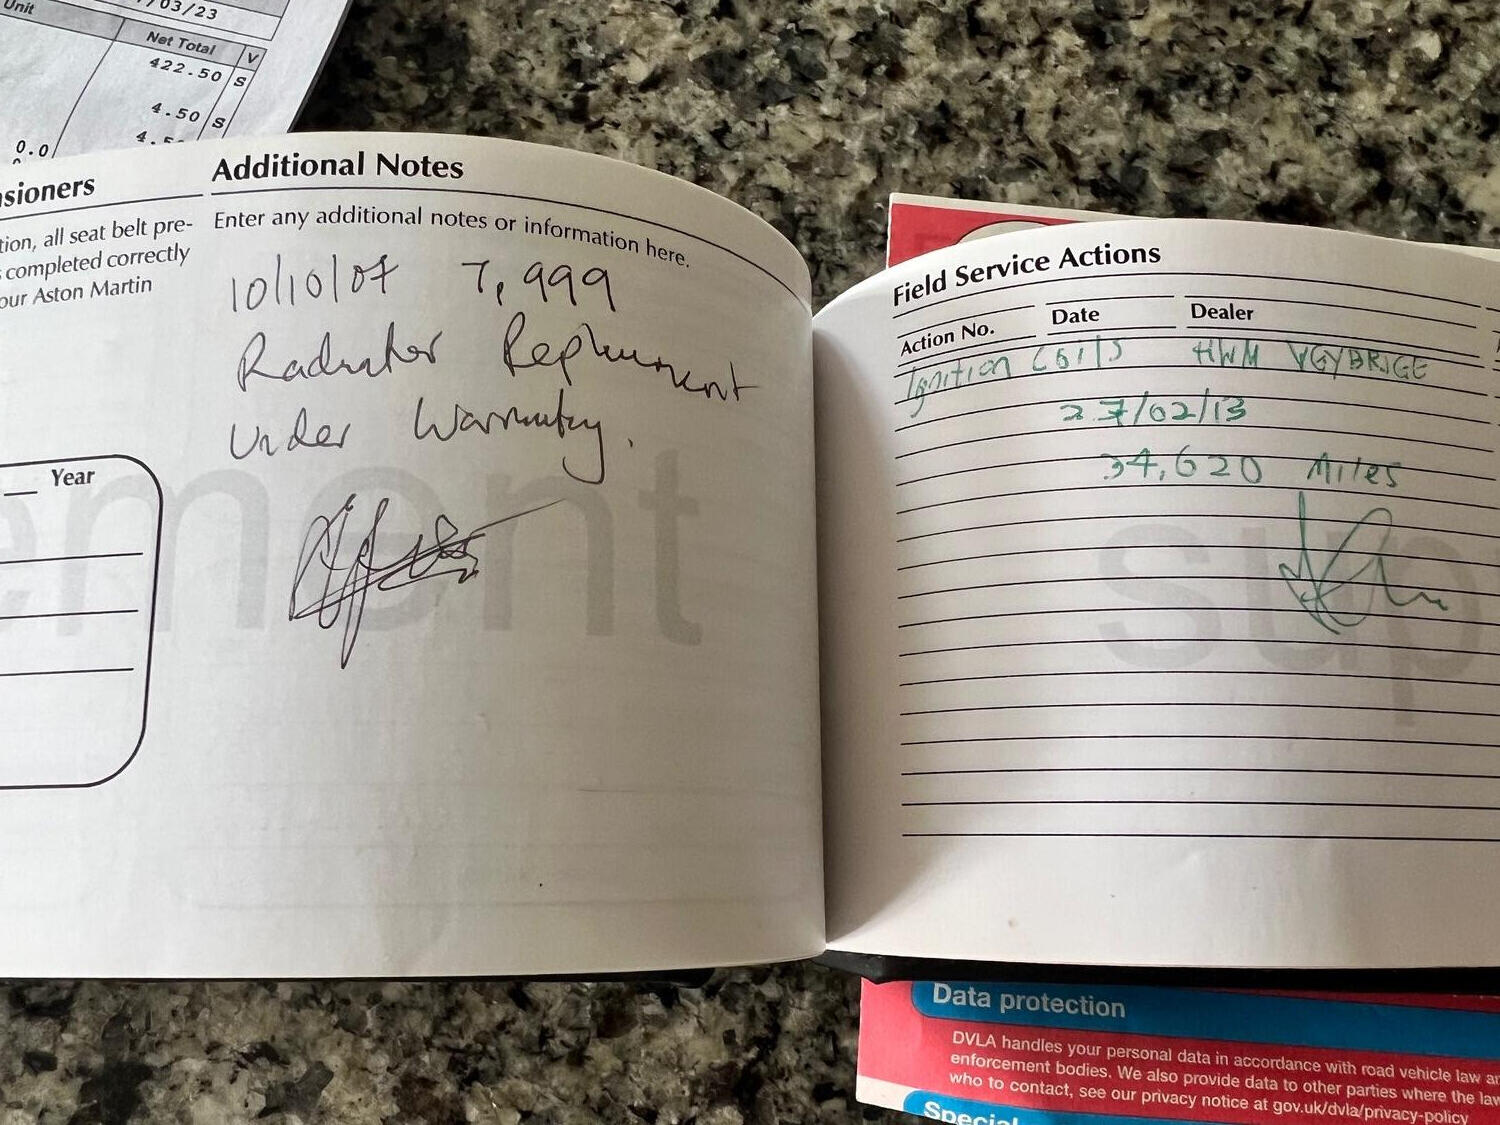 Unit
/03/23
Net Total V
422.50 S
4.50 S
0.0
sioners
tion, all seat belt pre-
s completed correctly
our Aston Martin
Year
Additional Notes
Enter any additional notes or information here.
10/10/07 7,999
Radiator Replacement
Under Warranty.
ement
Field Service Actions
Action No. Date Dealer
Ignition Coils HWM
27/02/13
34,620 Miles
sup
Data protection
DVLA handles your personal data in accordance with road vehicle law
enforcement bodies. We also provide data to other parties where the law
who to contact, see our privacy notice at gov.uk/dvla/privacy-policy
Special